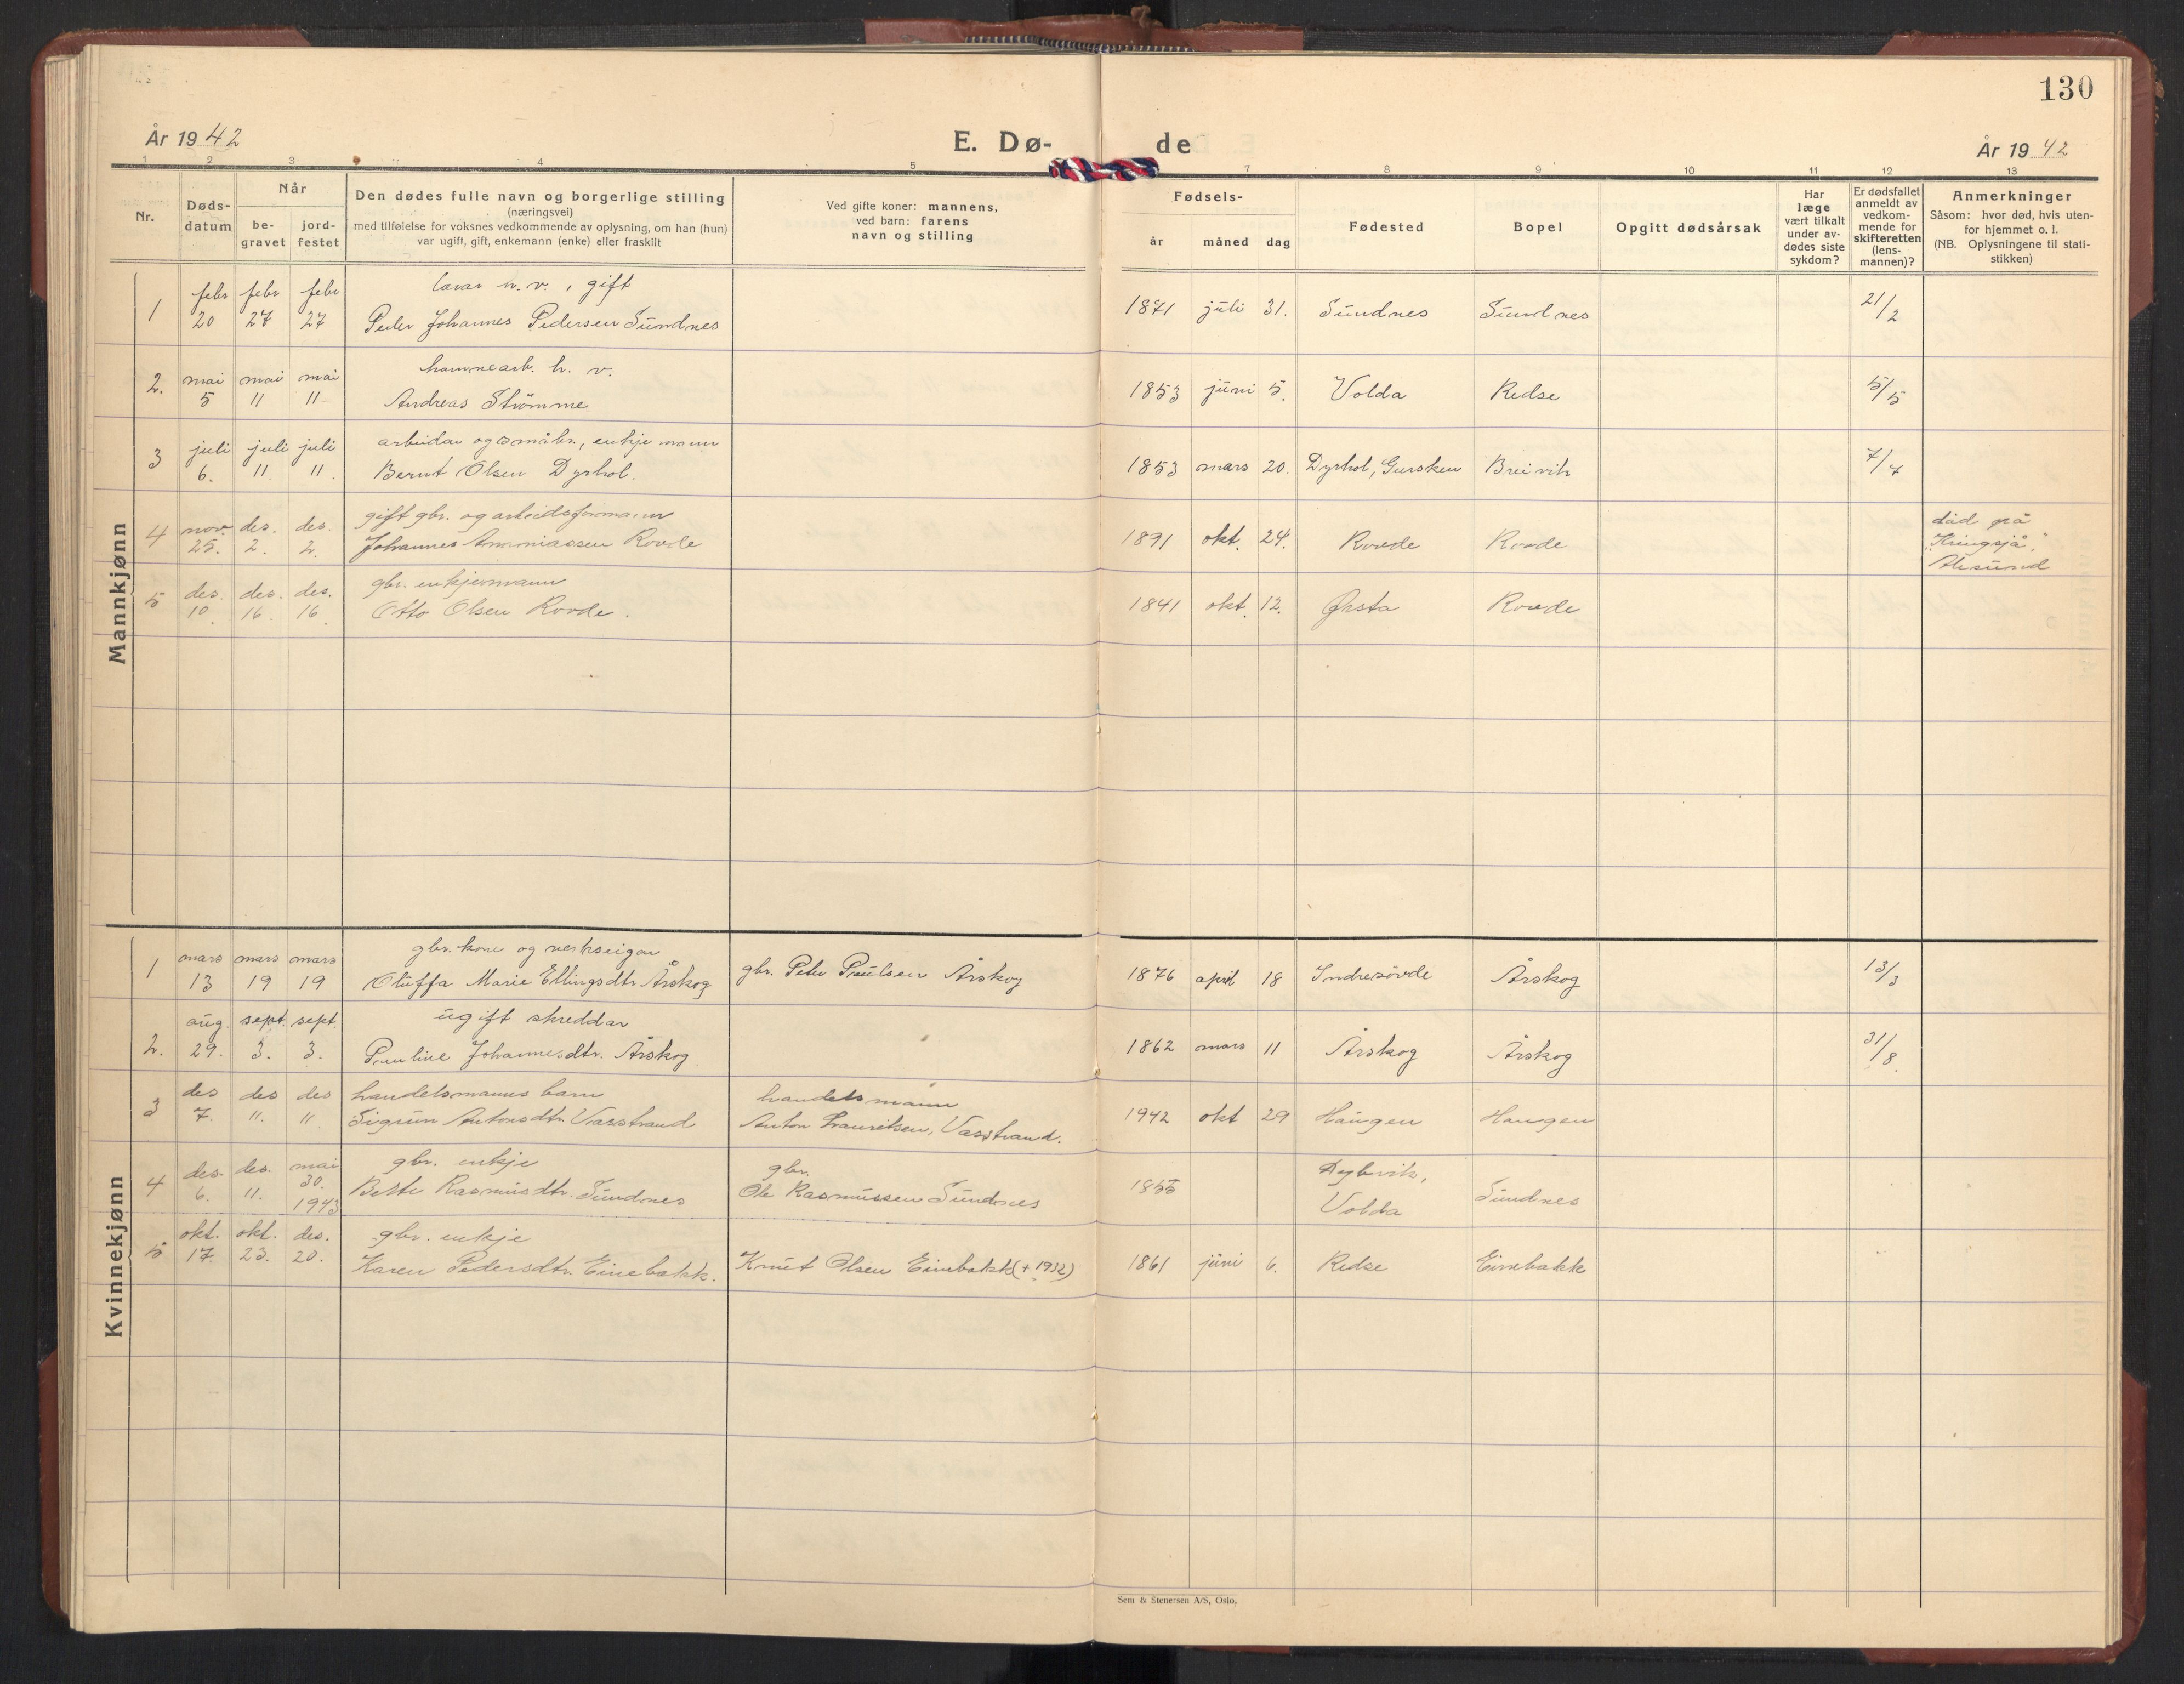 130
År 1942
E. Dø-
de
År 1942
1 2 3 4 5 7 8 9 10 11 12 13
Nr.
Døds-
datum
Når
be-
gravet
jord-
festet
Den dødes fulle navn og borgerlige stilling
(næringsvei)
med tilføielse for voksnes vedkommende av oplysning, om han (hun)
var ugift, gift, enkemann (enke) eller fraskilt
Ved gifte koner: mannens,
ved barn: farens
navn og stilling
Fødsels-
år måned dag
Fødested
Bopel
Opgitt dødsårsak
Har
læge
vært tilkalt
under av-
dødes siste
sykdom?
Er dødsfallet
anmeldt av
vedkom-
mende for
skifteretten
(lens-
mannen)?
Anmerkninger
Såsom: hvor død, hvis uten-
for hjemmet o. l.
(NB. Oplysningene til stati-
stikken)
Mannkjønn
febr febr febr lærar h. v., gift
1 20 27 27 Peder Johannes Pedersen Sundnes 1871 juli 31. Sundnes Sundnes 21/2
mai mai mai h. v.
2. 5 11 11 Andreas Strømme 1853 juni 5. Volda Redse 5/5
juli juli juli arbeidar og småbr., enkjemann
3 6. 11. 11. Bernt Olsen Dyrhol. 1853 mars 20. Dyrhol, Gursken Breivik 7/7
nov. des. des. gift gbr. og arbeidsformann
4 25. 2. 2. Johannes Ananiassen Rovde 1891 okt. 24. Rovde Rovde
død på
"Kringsjå",
Ålesund
des. des. des. gbr. enkjemann
5 10. 16. 16. Otto Olsen Rovde. 1841 okt. 12. Ørsta Rovde
Kvinnekjønn
mars mars mars gbr. kone og verkseigar
1 13 19 19 Oluffa Marie Ellingsdtr Årskog gbr. Peter Paulsen Årskog 1876 april 18 Indresøvde Årskog 13/3
aug. sept. sept. ugift skreddar
2. 29. 3. 3. Pauline Johannesdtr. Årskog 1862 mars 11 Årskog Årskog 31/8.
des des des handelsmanns barn handelsmann
3 7. 11. 11. Sigrun Antonsdtr. Vasstrand Anton Lauritsen, Vasstrand. 1942 okt 29 Haugen Haugen
des. des. mai gbr. enkje gbr.
4 6. 11. 30. 1943 Bette Rasmusdtr. Sundnes Ole Rasmussen Sundnes 1855 Volda Sundnes
okt. okt. des. gbr. enkje
5 17. 23. 20. Karen Pedersdtr. Einebakk. Knut Olsen Einebakk (+ 1932) 1861 juni 6. Redse Einebakk
Sem & Stenersen A/S, Oslo.